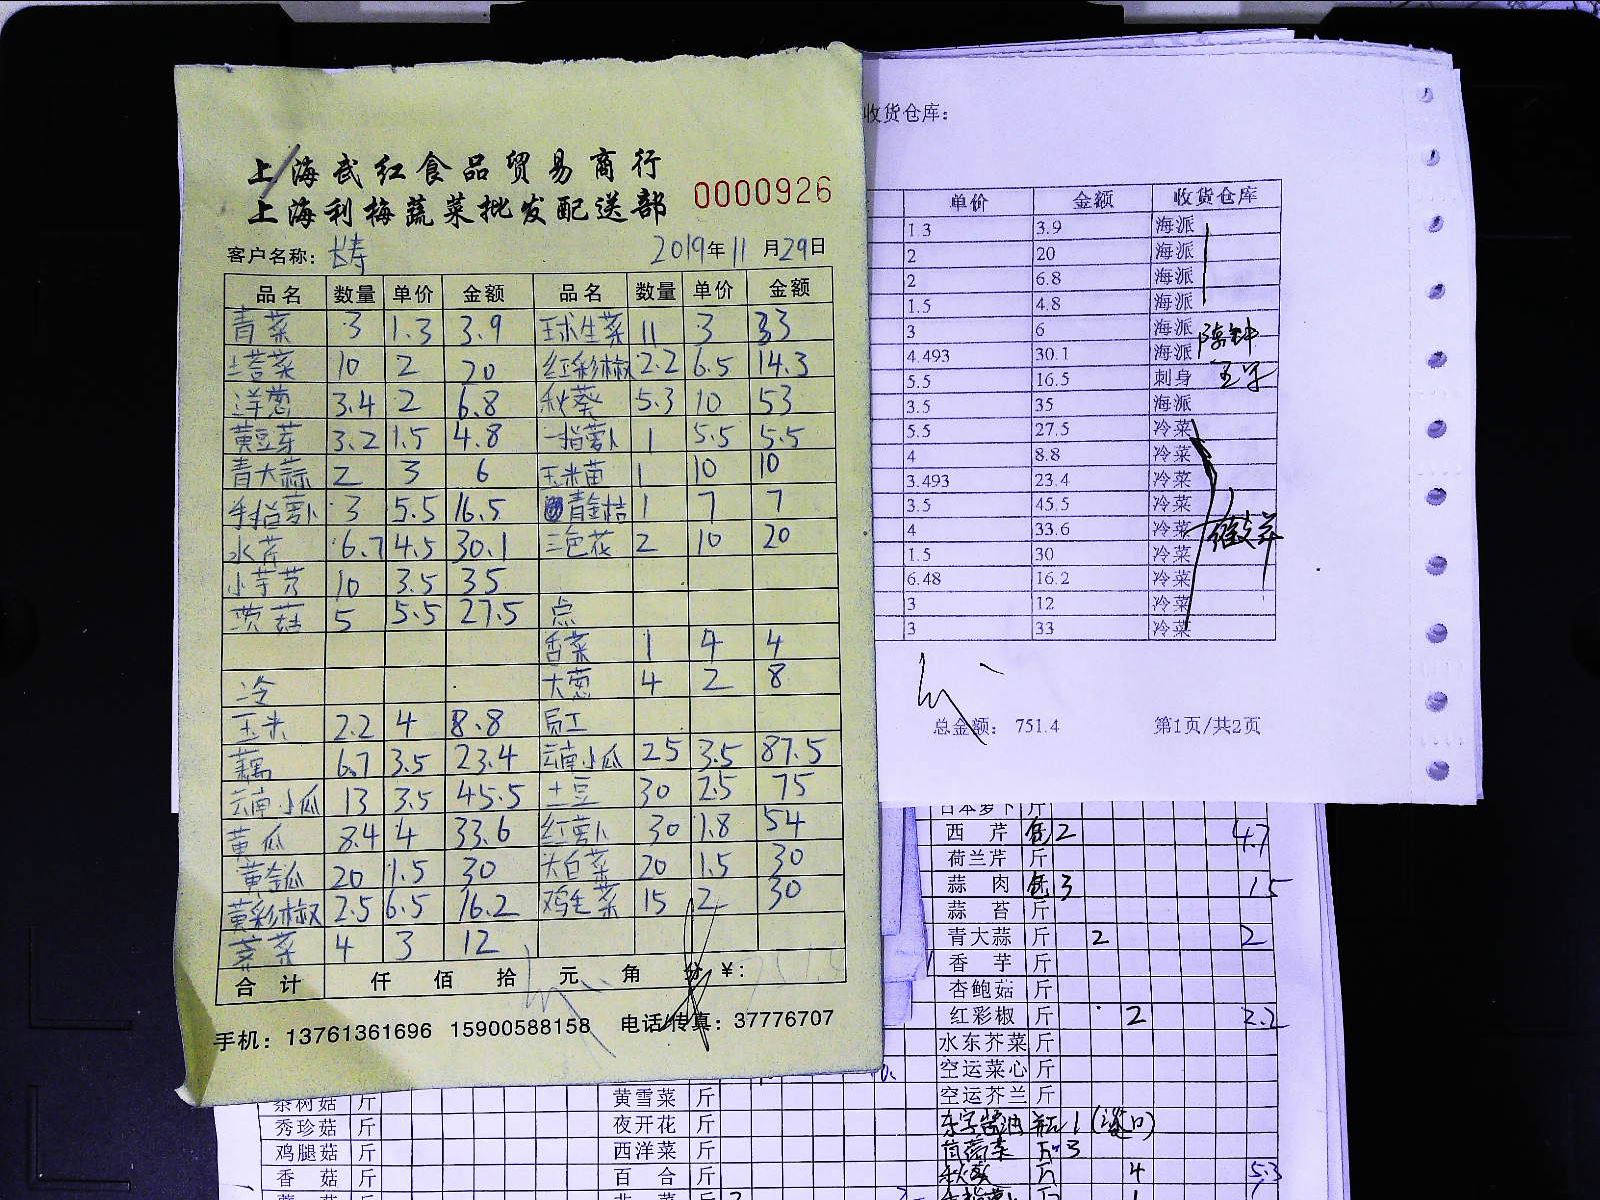 上海武红食品贸易商行
上海利梅蔬菜批发配送部
0000926
客户名称: 长寿 2019年11月29日
品名 数量 单价 金额 品名 数量 单价 金额
青菜 3 1.3 3.9 球生菜 11 3 33
塔菜 10 2 20 红彩椒 2.2 6.5 14.3
洋葱 3.4 2 6.8 秋葵 5.3 10 53
黄豆芽 3.2 1.5 4.8 一指萝卜 1 5.5 5.5
青大蒜 2 3 6 玉米苗 1 10 10
手指萝卜 3 5.5 16.5 青金桔 1 7 7
水芹 6.7 4.5 30.1 三色花 2 10 20
小芋艿 10 3.5 35
茨菇 5 5.5 27.5 点
香菜 1 4 4
冷 大葱 4 2 8
玉米 2.2 4 8.8 员工
藕 6.7 3.5 23.4 云南小瓜 25 3.5 87.5
云南小瓜 13 3.5 45.5 土豆 30 2.5 75
黄瓜 8.4 4 33.6 红萝卜 30 1.8 54
黄金瓜 20 1.5 30 大白菜 20 1.5 30
黄彩椒 2.5 6.5 16.2 鸡毛菜 15 2 30
荠菜 4 3 12
合计 仟 佰 拾 元 角 分 ¥:
手机: 13761361696 15900588158 电话/传真: 37776707
收货仓库:
单价 金额 收货仓库
1.3 3.9 海派
2 20 海派
2 6.8 海派
1.5 4.8 海派
3 6 海派
4.493 30.1 海派
5.5 16.5 刺身
3.5 35 海派
5.5 27.5 冷菜
4 8.8 冷菜
3.493 23.4 冷菜
3.5 45.5 冷菜
4 33.6 冷菜
1.5 30 冷菜
6.48 16.2 冷菜
3 12 冷菜
3 33 冷菜
总金额: 751.4 第1页/共2页
日本萝卜 斤
西芹 2 4.7
荷兰芹 斤
蒜肉 3 15
蒜苔 斤
青大蒜 斤 2 2
香芋 斤
杏鲍菇 斤
红彩椒 斤 2 2.2
水东芥菜 斤
空运菜心 斤
空运芥兰 斤
茶树菇 斤 黄雪菜 斤
秀珍菇 斤 夜开花 斤
鸡腿菇 斤 西洋菜 斤 3
香菇 斤 百合 斤 秋葵 斤 4 5.3